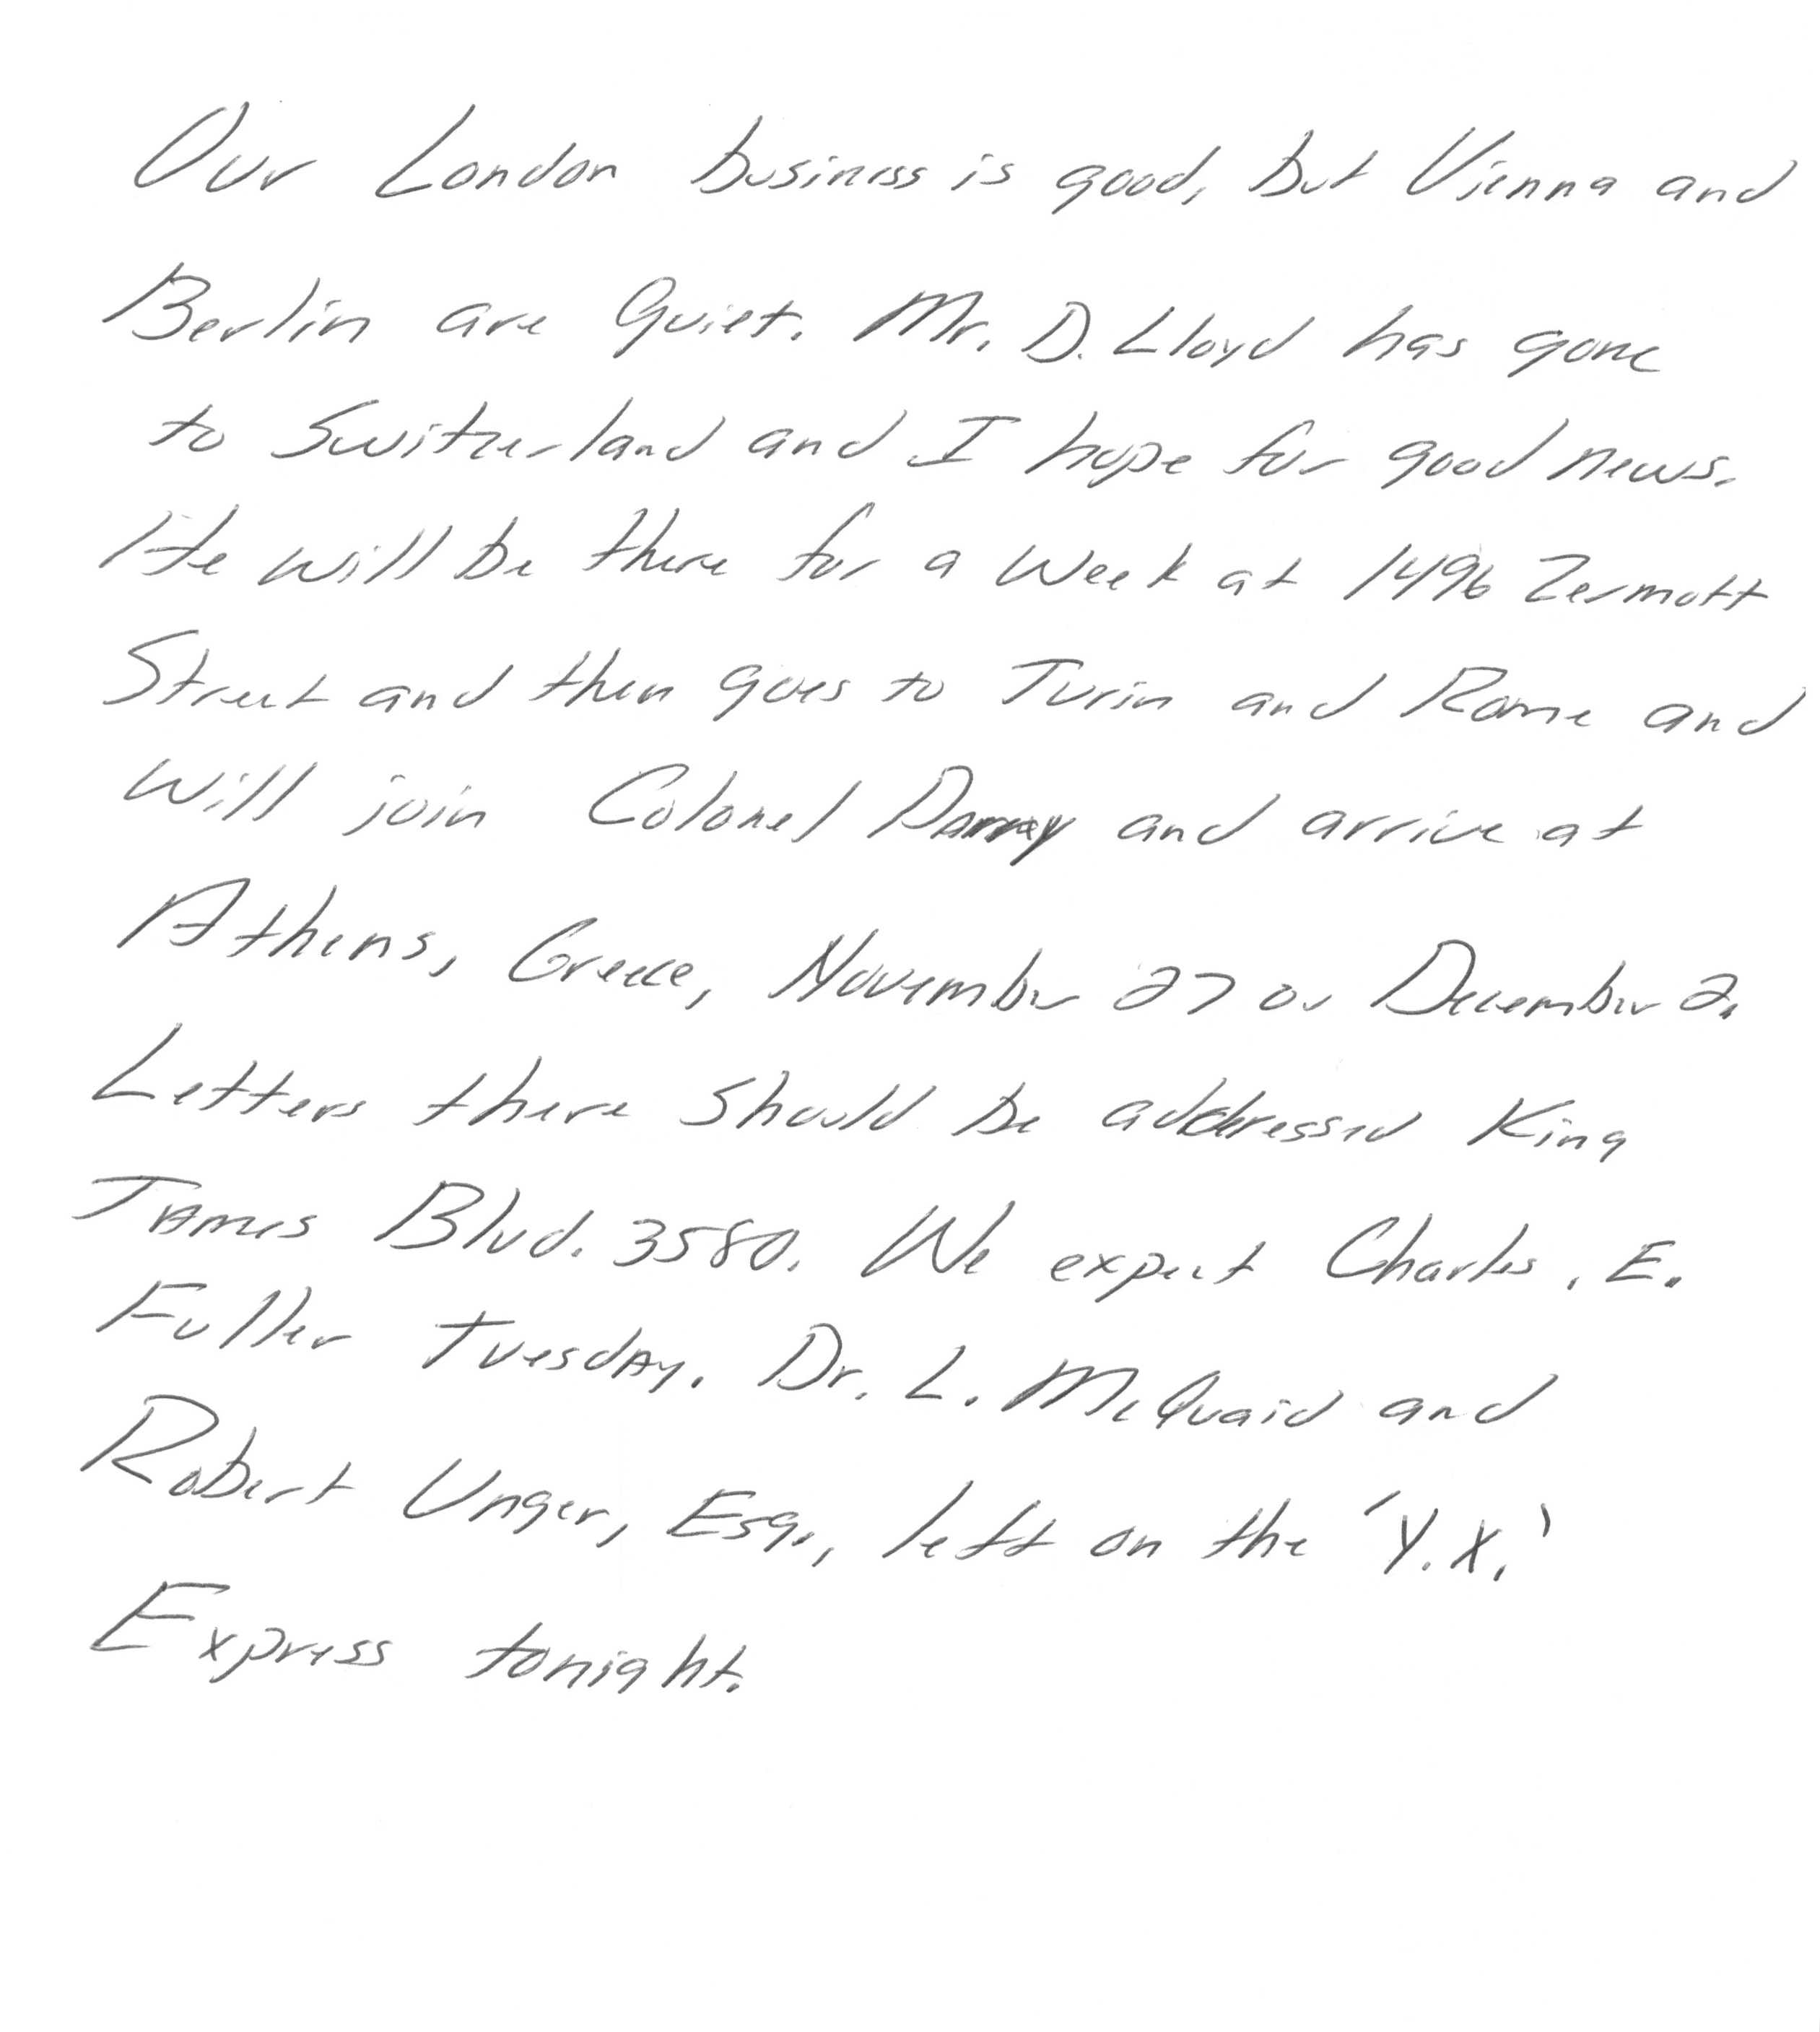 Our London business is good, but Vienna and
Berlin are Quiet. Mr. D. Lloyd has gone
to Switzerland and I hope for good news.
He will be there for a week at 1496 Zermott
Street and then goes to Turin and Rome and
will join Colonel and arrive at
Athens, Greece, November 27 or December 2.
Letters there should be addressed King
James Blvd. 3580. We expect Charles, E.
Fuller Tuesday. Dr. L. McQuaid and
Robert Unger, Esq., left on the 'Y.X.'
Express tonight.